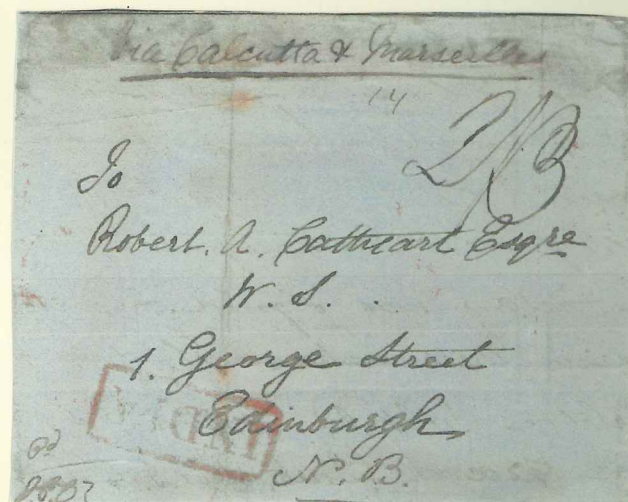 Via Calcutta & Marseilles
14
2/3
To
Robert. A. Cathcart Esqre
W. S.
1. George Street
Edinburgh
N. B.
INDIA